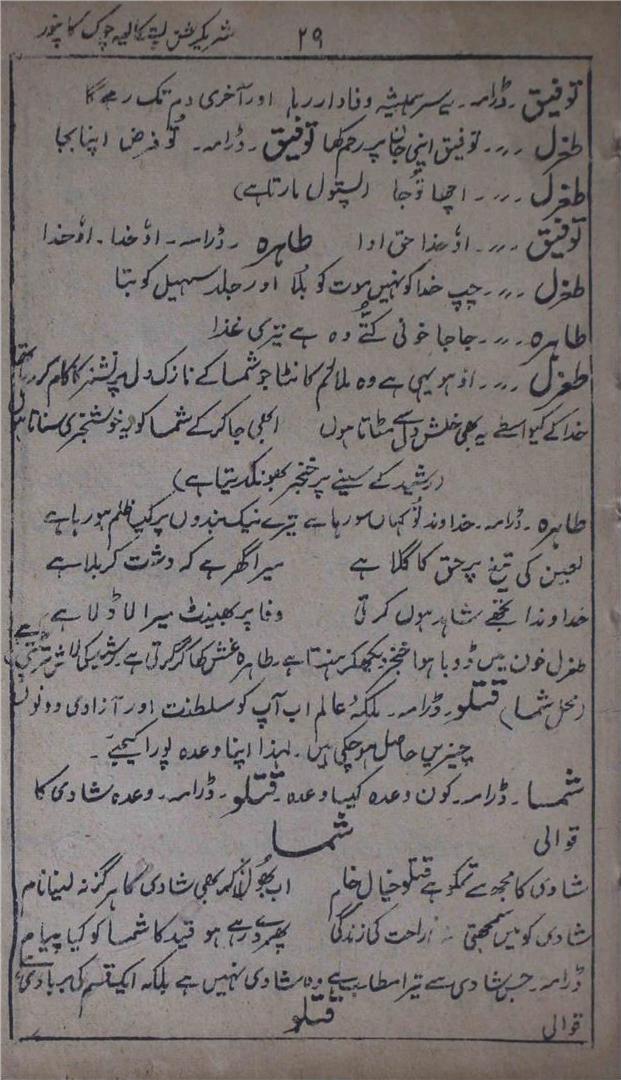 ۲۹ شریکرشن پستکالیہ چوک کانپور
توفیق ۔ ڈرامہ ۔ یہ سر ہمیشہ وفادار رہا اور آخری دم تک رہے گا
طغرل ۔ ،، ۔ توفیق اپنی جان پر رحم کھا توفیق ۔ ڈرامہ ۔ تو فرض اپنا بجا
طغرل ۔ ،، ۔ اچھا تو جا (پستول مارتا ہے)
توفیق ۔ ،، ۔ او خدا حق ادا طاہرہ ۔ ڈرامہ ۔ او خدا ۔ او خدا
طغرل ۔ ،، ۔ چپ خدا کو نہیں موت کو بلا اور جلد سہیل کو بتا
طاہرہ ۔ ،، ۔ جا جا خونی کتے وہ ہے تیری غذا
طغرل ۔ ،، ۔ او ہو یہی ہے وہ ملائم کانٹا جو شمسا کے نازک دل پر نشتر کا کام کر رہا تھا
خدا کے کیواسطے یہ بھی خلش دل سے مٹاتا ہوں ابھی جا کر کے شمسا کو یہ خوشخبری سناتا ہوں
(رشید کے سینے پر خنجر بھونکدیتا ہے)
طاہرہ ۔ ڈرامہ ۔ خداوند تو کہاں سو رہا ہے تیرے نیک بندوں پر کیا ظلم ہو رہا ہے
لعین کی تیغ پر حق کا گلا ہے میرا گھر ہے کہ دشت کربلا ہے
خداوندا تجھے شاہد ہوں کرتی وفا پر بھینٹ میرا لاڈلا ہے
طغرل خون میں ڈوبا ہوا خنجر دیکھکر ہنستا ہے ۔ طاہرہ غش کھا کر گرتی ہے رشید کی لاش تڑپتی ہے
(محل شمسا) قتلو ۔ ڈرامہ ۔ ملکہ عالم اب آپ کو سلطنت اور آزادی دونوں
چیزیں حاصل ہو چکی ہیں ۔ لہذا اپنا وعدہ پورا کیجئے ۔
شمسا ۔ ڈرامہ ۔ کون وعدہ کیسا وعدہ ۔ قتلو ۔ ڈرامہ ۔ وعدہ شادی کا
قوالی شمسا
شادی کا مجھ سے تمکو ہے قتلو خیال خام اب بھول کر بھی شادی کا ہرگز نہ لینا نام
شادی کو میں سمجھتی راحت کی زندگی پھر دے رہے ہو قید کا شمسا کو کیا پیام
ڈرامہ ۔ جس شادی سے تیرا مطلب ہے وہ شادی نہیں ہے بلکہ ایک قسم کی بربادی ہے
قوالی قتلو